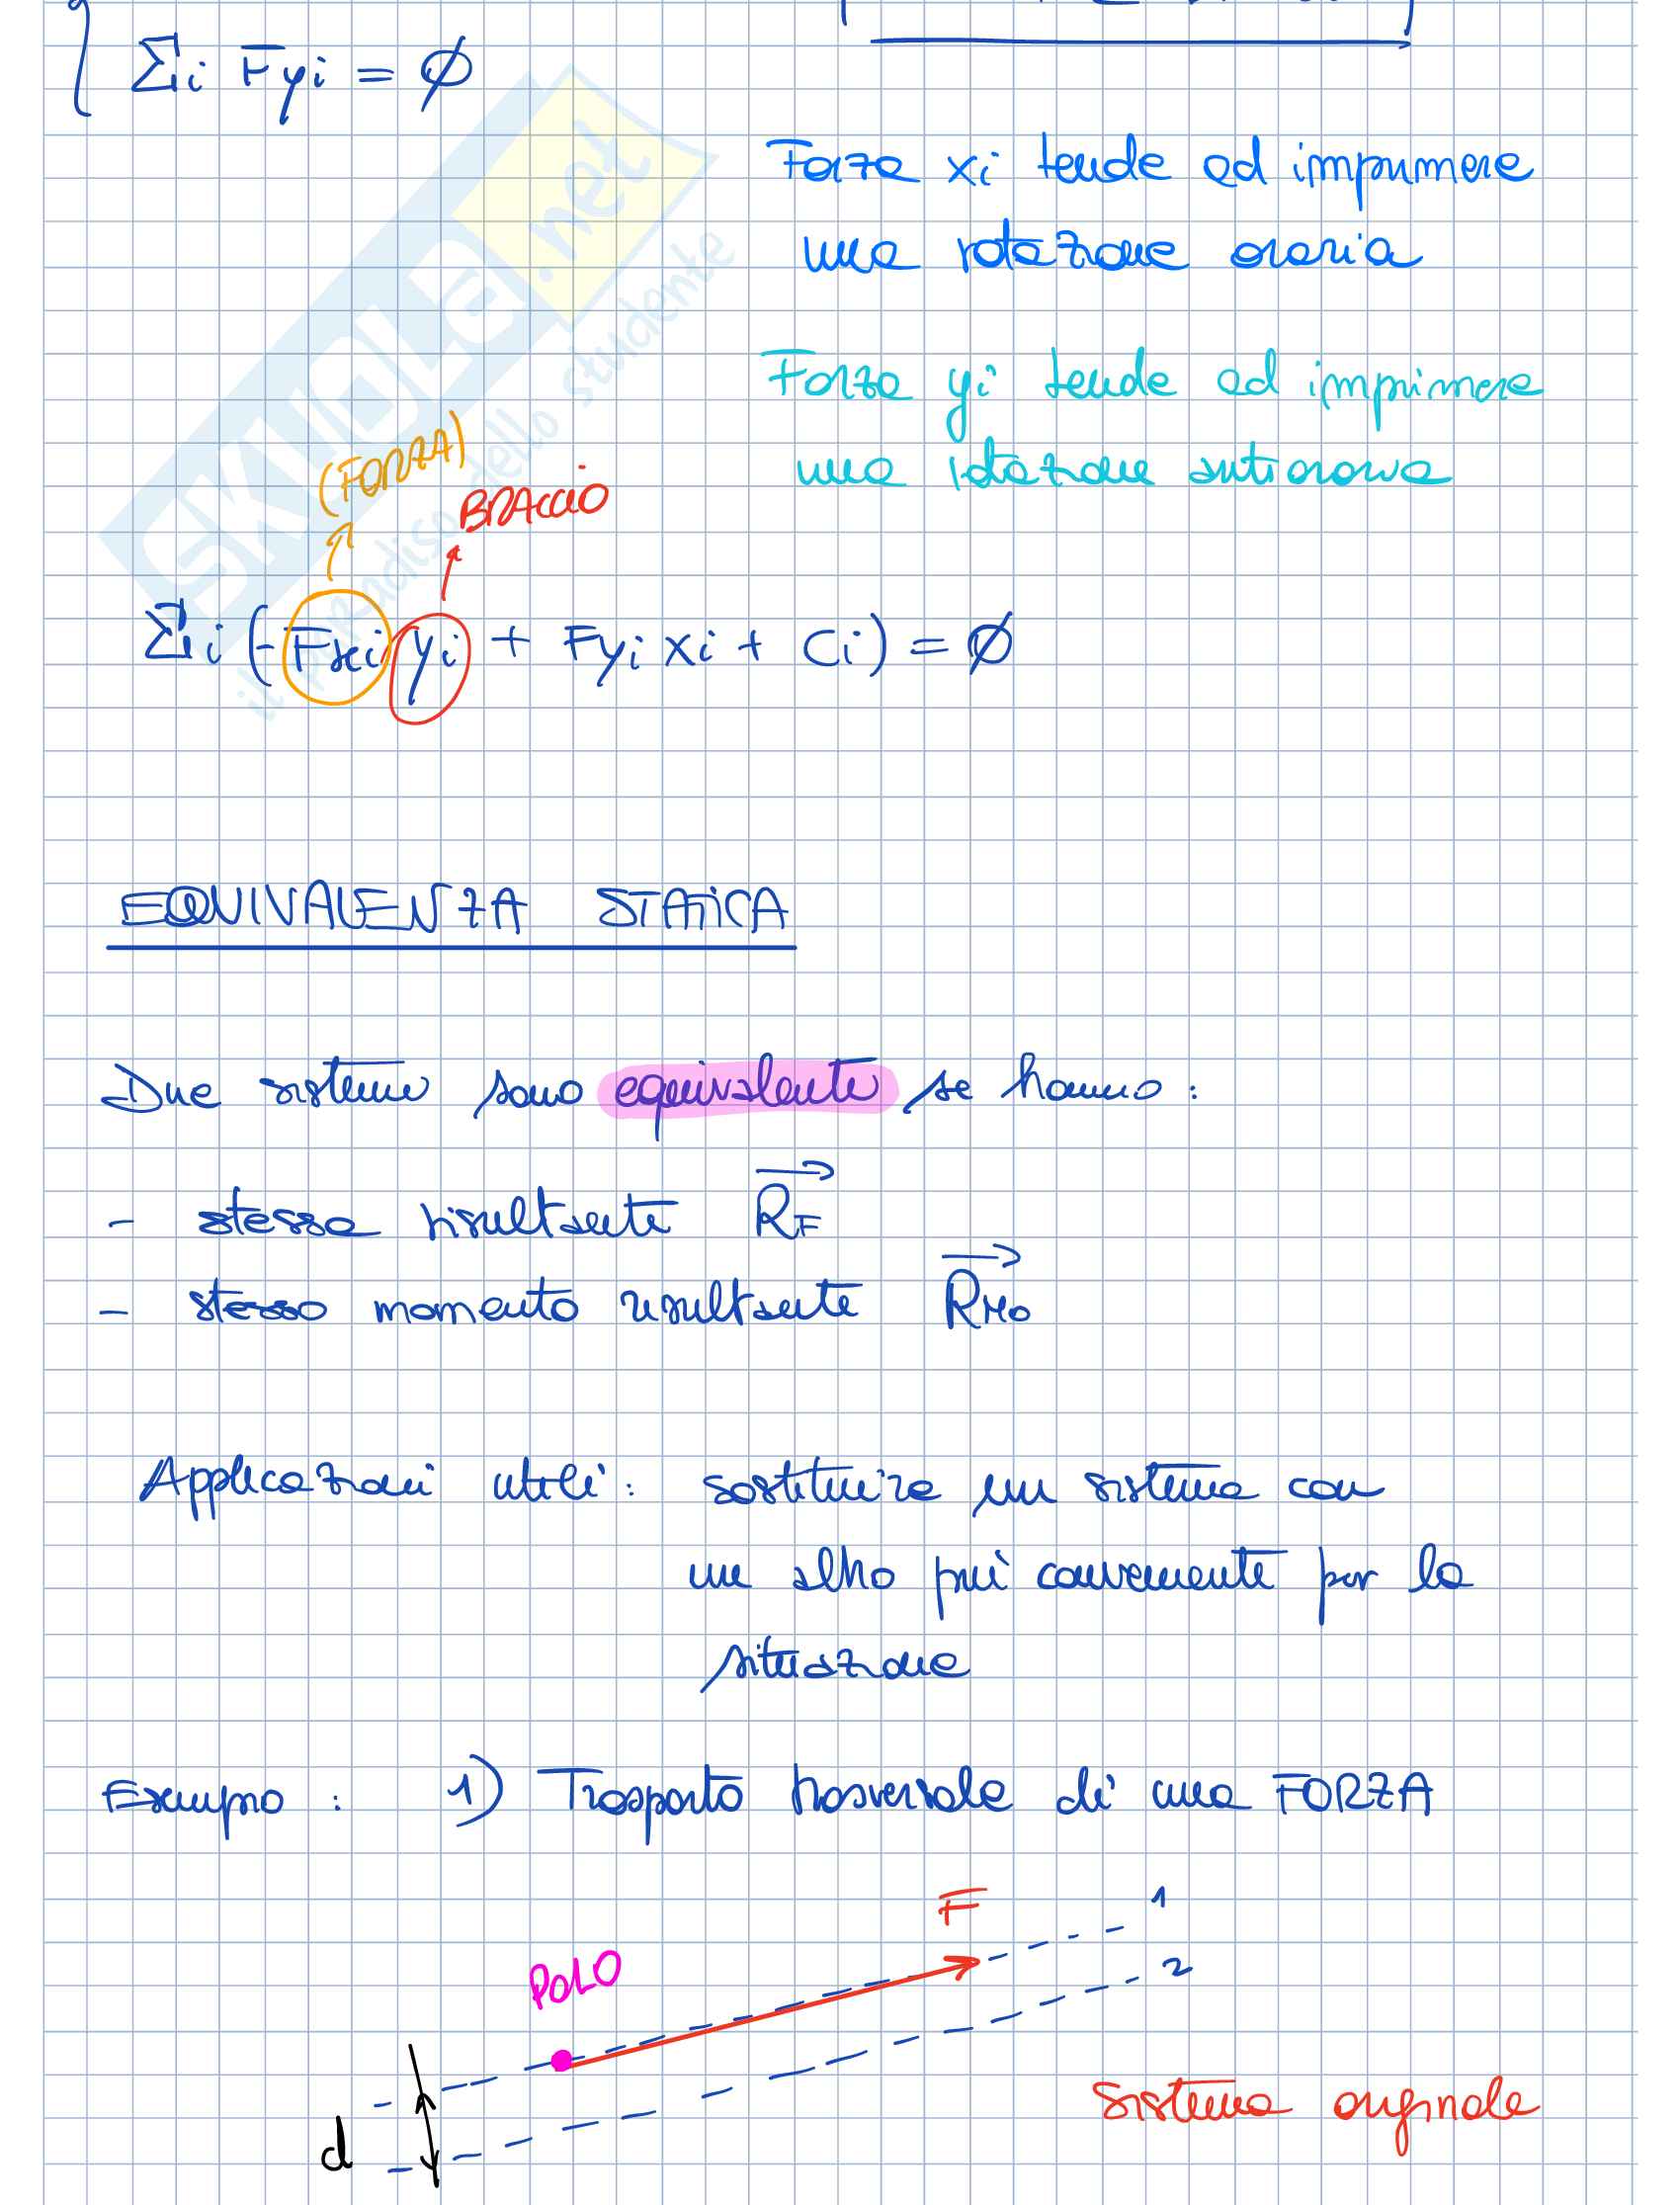 Σi Fyi = ∅
Forza xi tende ad imprimere
una rotazione oraria
Forza yi tende ad imprimere
una rotazione antioraria
(FORZA)
BRACCIO
Σi (-Fxi yi + Fyi xi + Ci) = ∅
EQUIVALENZA STATICA
Due sistemi sono equivalenti se hanno:
- stessa risultante RF
- stesso momento risultante RMo
Applicazioni utili: sostituire un sistema con
un altro più conveniente per la
situazione
Esempio : 1) Trasporto trasversale di una FORZA
F
1
2
POLO
d
Sistema originale
SKUOLA.net
il paradiso dello studente